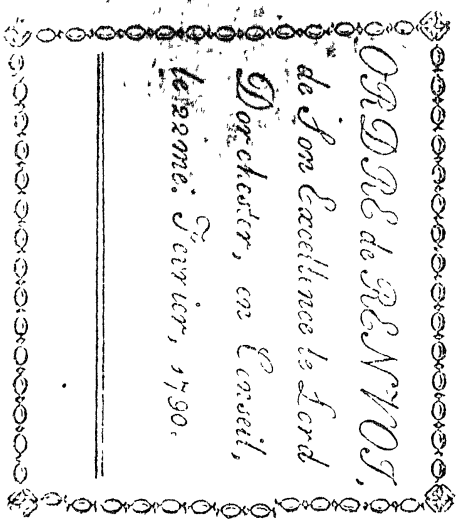 ORDRE de RENVOI,
de Son Excellence le Lord
Dorchester, en Conseil,
le 22me. Fevrier, 1790.